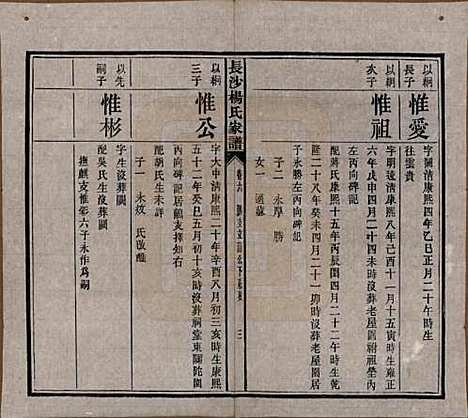 以桐長子
惟愛
字闕清康熙四年乙巳正月二十午時生
往雲貴
以桐次子
惟祖
字明遠清康熙八年己酉十一月十五寅時生雍正
六年戊申四月二十四未時沒葬老屋
丙向碑記
配蔣氏康熙十五年丙辰閏四月二十二午時生乾
隆二十八年癸未四月二十一卯時沒葬老屋閣居
子永勝左丙向碑記
子二 永厚 勝
女一 適蘇
長沙楊氏家譜
卷六
三
以桐三子
惟公
字大中清康熙二十年辛酉八月初三亥時生康熙
五十二年癸巳五月初十亥時沒葬祠堂東
丙向碑記居麒支擇如右
配胡氏生沒葬闕
子一 永政 氏改醮
以先嗣子
惟彬
字生沒葬闕
配吳氏生沒葬闕
撫麒支惟彩六子永作爲嗣